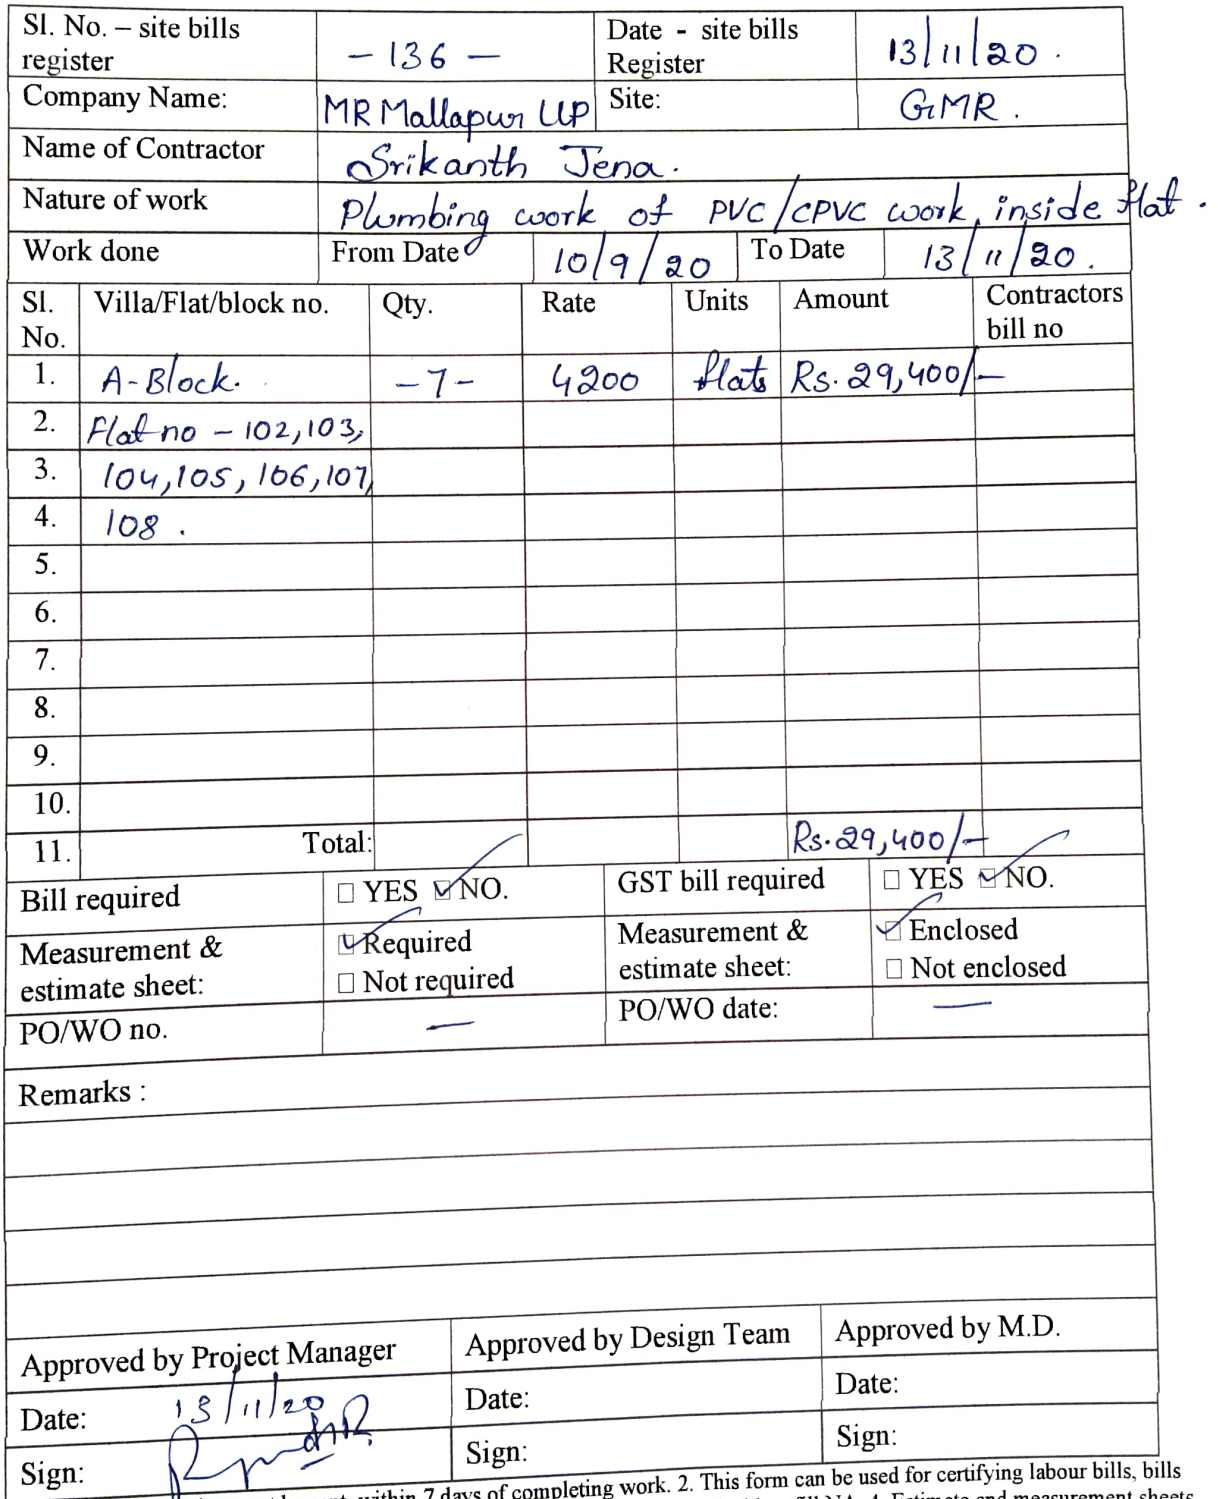 Sl. No. – site bills register - 136 - Date - site bills Register 13/11/20.
Company Name: MR Mallapur LLP Site: GMR.
Name of Contractor Srikanth Jena.
Nature of work Plumbing work of PVC/CPVC work, inside flat.
Work done From Date 10/9/20 To Date 13/11/20.
Sl. No. Villa/Flat/block no. Qty. Rate Units Amount Contractors bill no
1. A-Block. -7- 4200 flats Rs. 29,400/-
2. Flat no - 102,103,
3. 104,105,106,107,
4. 108.
5.
6.
7.
8.
9.
10.
11. Total: Rs.29,400/-
Bill required □ YES ☑ NO. GST bill required □ YES ☑ NO.
Measurement & estimate sheet: ☑ Required □ Not required Measurement & estimate sheet: ☑ Enclosed □ Not enclosed
PO/WO no. — PO/WO date: —
Remarks :
Approved by Project Manager Approved by Design Team Approved by M.D.
Date: 13/11/20 Date: Date:
Sign: Sign: Sign:
within 7 days of completing work. 2. This form can be used for certifying labour bills, bills
NA. 4. Estimate and measurement sheets